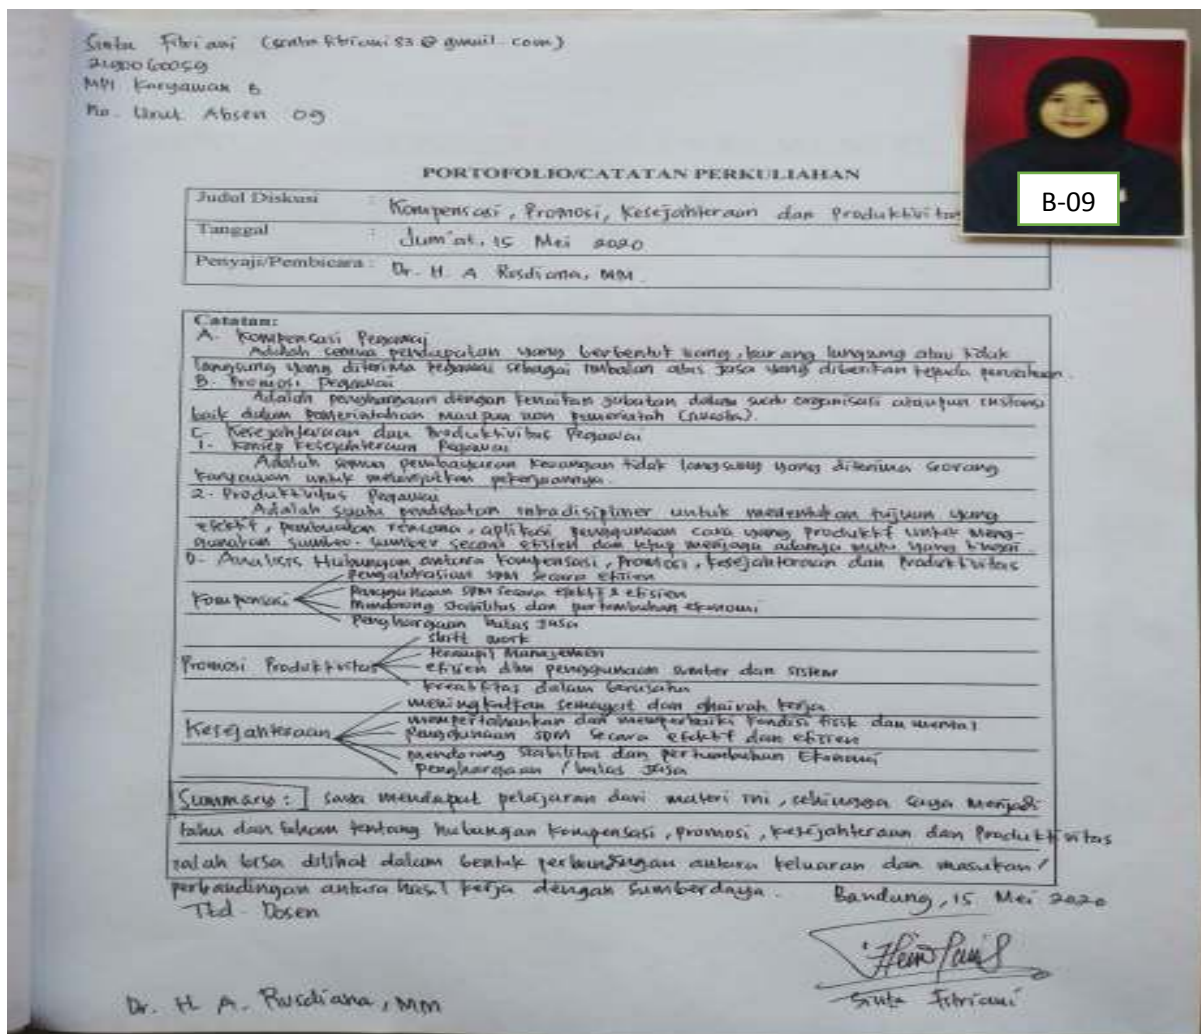 Sinta Fitriani (sintafitriani83@gmail.com)
2190060059
MPI Karyawan B
No. Urut Absen 09
B-09
PORTOFOLIO/CATATAN PERKULIAHAN
Judul Diskusi : Kompensasi, Promosi, Kesejahteraan dan Produktivitas
Tanggal : Jum'at, 15 Mei 2020
Penyaji/Pembicara : Dr. H. A Rusdiana, MM.
Catatan:
A. Kompensasi Pegawai
Adalah semua pendapatan yang berbentuk uang, barang langsung atau tidak
langsung yang diterima pegawai sebagai imbalan atas jasa yang diberikan kepada perusahaan.
B. Promosi Pegawai
Adalah penghargaan dengan kenaikan jabatan dalam suatu organisasi ataupun instansi
baik dalam pemerintahan maupun non pemerintah (swasta).
C. Kesejahteraan dan Produktivitas Pegawai
1. Konsep Kesejahteraan Pegawai
Adalah semua pembayaran keuangan tidak langsung yang diterima seorang
karyawan untuk melanjutkan pekerjaannya.
2. Produktivitas Pegawai
Adalah suatu pendekatan intradisipliner untuk menentukan tujuan yang
efektif, pembuatan rencana, aplikasi penggunaan cara yang produktif untuk meng-
gunakan sumber-sumber secara efisien dan tetap menjaga adanya mutu yang tinggi.
D. Analisis Hubungan antara Kompensasi, Promosi, Kesejahteraan dan Produktivitas
Kompensasi
Pengalokasian SDM secara efisien
Penggunaan SDM secara efektif & efisien
Mendorong stabilitas dan pertumbuhan ekonomi
Penghargaan balas jasa
Promosi Produktivitas
shift work
terampil Manajemen
efisien dlm penggunaan sumber dan sistem
kreatifitas dalam berusaha
Kesejahteraan
meningkatkan semangat dan ghairah kerja
mempertahankan dan memperbaiki kondisi fisik dan mental
Penggunaan SDM secara efektif dan efisien
mendorong stabilitas dan pertumbuhan Ekonomi
penghargaan / balas jasa
Summary : saya mendapat pelajaran dari materi ini, sehingga saya menjadi
tahu dan faham tentang hubungan kompensasi, promosi, kesejahteraan dan Produktivitas
ialah bisa dilihat dalam bentuk perbandingan antara keluaran dan masukan /
perbandingan antara hasil kerja dengan sumberdaya.
Bandung, 15 Mei 2020
Ttd. Dosen
Dr. H. A. Rusdiana, MM
Sinta Fitriani